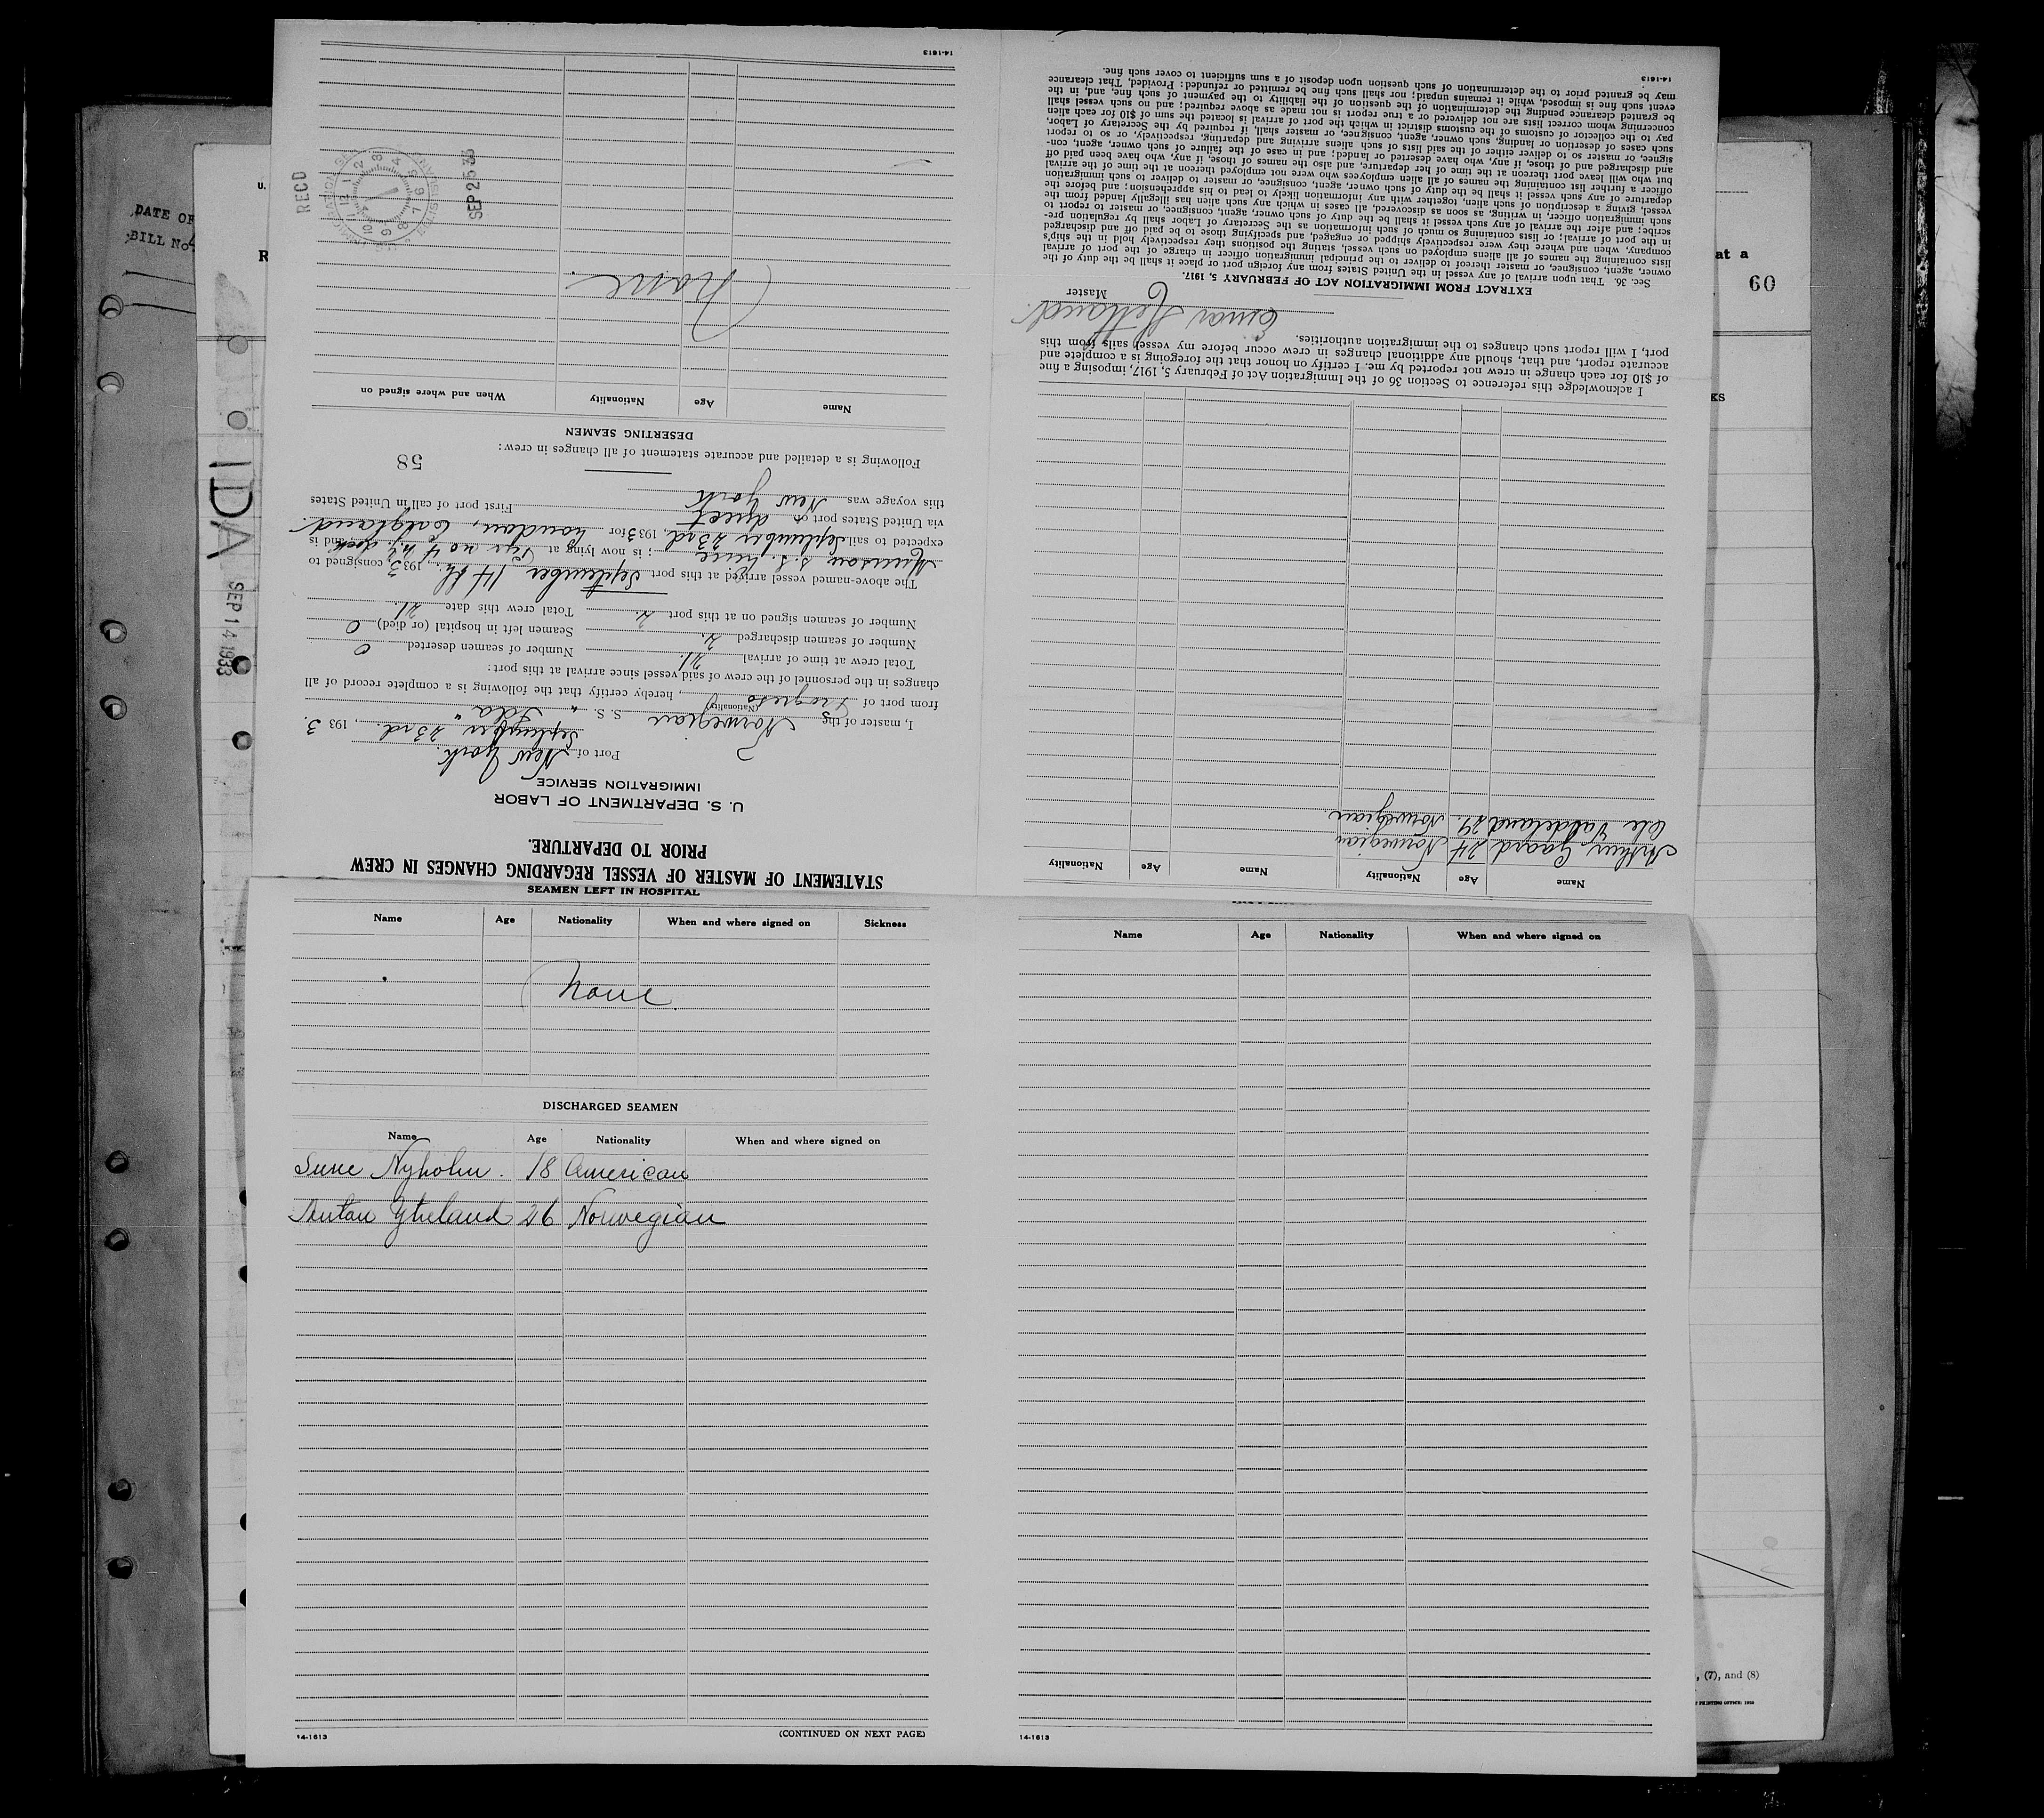 STATEMENT OF MASTER OF VESSEL REGARDING CHANGES IN CREW
PRIOR TO DEPARTURE.
U. S. DEPARTMENT OF LABOR
IMMIGRATION SERVICE
Port of New York.
September 23rd., 1933.
I, master of the Norwegian S. S. "Ida"
(Nationality)
from port of Progreso, hereby certify that the following is a complete record of all
changes in the personnel of the crew of said vessel since arrival at this port:
Total crew at time of arrival 21. Number of seamen deserted 0
Number of seamen discharged 2. Seamen left in hospital (or died) 0
Number of seamen signed on at this port 2. Total crew this date 21.
The above-named vessel arrived at this port September 14th., 1933, consigned to
Munson S.S. Line; is now lying at Pier no 4 and is
expected to sail September 23rd, 1933 for London, England
via United States port of direct First port of call in United States
this voyage was New York
Following is a detailed and accurate statement of all changes in crew:
58
DESERTING SEAMEN
Name Age Nationality When and where signed on
None.
RECD
SEP 25 33
14-1613
SEAMEN LEFT IN HOSPITAL
Name Age Nationality When and where signed on Sickness
None.
DISCHARGED SEAMEN
Name Age Nationality When and where signed on
Sune Nyholm. 18 American
Anton Ytreland 26 Norwegian
14-1613 (CONTINUED ON NEXT PAGE)
Name Age Nationality When and where signed on
14-1613
Name Age Nationality Name Age Nationality
Arthur Gaard 24 Norwegian
Ole Valdeland 29. Norwegian.
I acknowledge this reference to Section 36 of the Immigration Act of February 5, 1917, imposing a fine
of $10 for each change in crew not reported by me. I certify on honor that the foregoing is a complete and
accurate report, and that, should any additional changes in crew occur before my vessel sails from this
port, I will report such changes to the immigration authorities.
Einar
Master
EXTRACT FROM IMMIGRATION ACT OF FEBRUARY 5, 1917.
Sec. 36. That upon arrival of any vessel in the United States from any foreign port or place it shall be the duty of the
owner, agent, consignee, or master thereof to deliver to the principal immigration officer in charge of the port of arrival
lists containing the names of all aliens employed on such vessel, stating the positions they respectively hold in the ship's
company, when and where they were respectively shipped or engaged, and specifying those to be paid off and discharged
in the port of arrival; or lists containing so much of such information as the Secretary of Labor shall by regulation pre-
scribe; and after the arrival of any such vessel it shall be the duty of such owner, agent, consignee, or master to report to
such immigration officer, in writing, as soon as discovered, all cases in which any such alien has illegally landed from the
vessel, giving a description of such alien, together with any information likely to lead to his apprehension; and before the
departure of any such vessel it shall be the duty of such owner, agent, consignee, or master to deliver to such immigration
officer a further list containing the names of all alien employees who were not employed thereon at the time of the arrival
but who will leave port thereon at the time of her departure, and also the names of those, if any, who have been paid off
and discharged, and of those, if any, who have deserted or landed; and in case of the failure of such owner, agent, con-
signee, or master so to deliver either of the said lists of such aliens arriving and departing, respectively, or so to report
such cases of desertion or landing, such owner, agent, consignee, or master shall, if required by the Secretary of Labor,
pay to the collector of customs of the customs district in which the port of arrival is located the sum of $10 for each alien
concerning whom correct lists are not delivered or a true report is not made as above required; and no such vessel shall
be granted clearance pending the determination of the question of the liability to the payment of such fine, and, in the
event such fine is imposed, while it remains unpaid; nor shall such fine be remitted or refunded: Provided, That clearance
may be granted prior to the determination of such question upon deposit of a sum sufficient to cover such fine.
14-1613
DATE OF
BILL No
U.
R
IDA
SEP 14 1933
at a
60
KS
, (7), and (8)